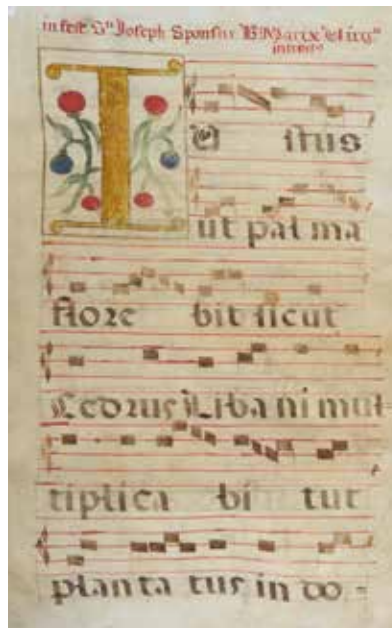 in fest Sti Joseph Sponsi B Mariæ
IU stus
ut pal ma
flore bit sicut
Cedrus Liba ni mul
tiplica bi tur
planta tus in do -